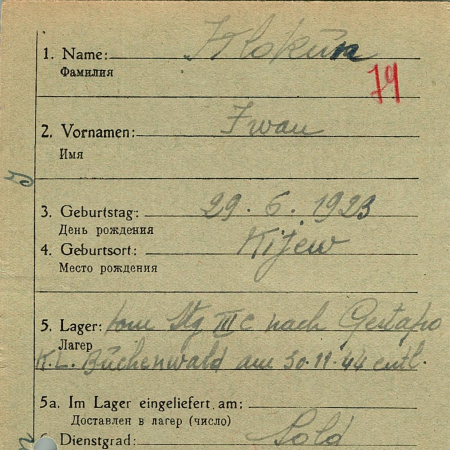 1. Name: Klokun
Фамилия
79
2. Vornamen: Iwan
Имя
3. Geburtstag: 29. 6. 1923
День рождения
4. Geburtsort: Kijew
Место рождения
5. Lager: vom Stg III C nach Gestapo
Лагерь
K.L. Buchenwald am 30.11.44 entl.
5a. Im Lager eingeliefert am:
Доставлен в лагерь (число)
6. Dienstgrad: Sold